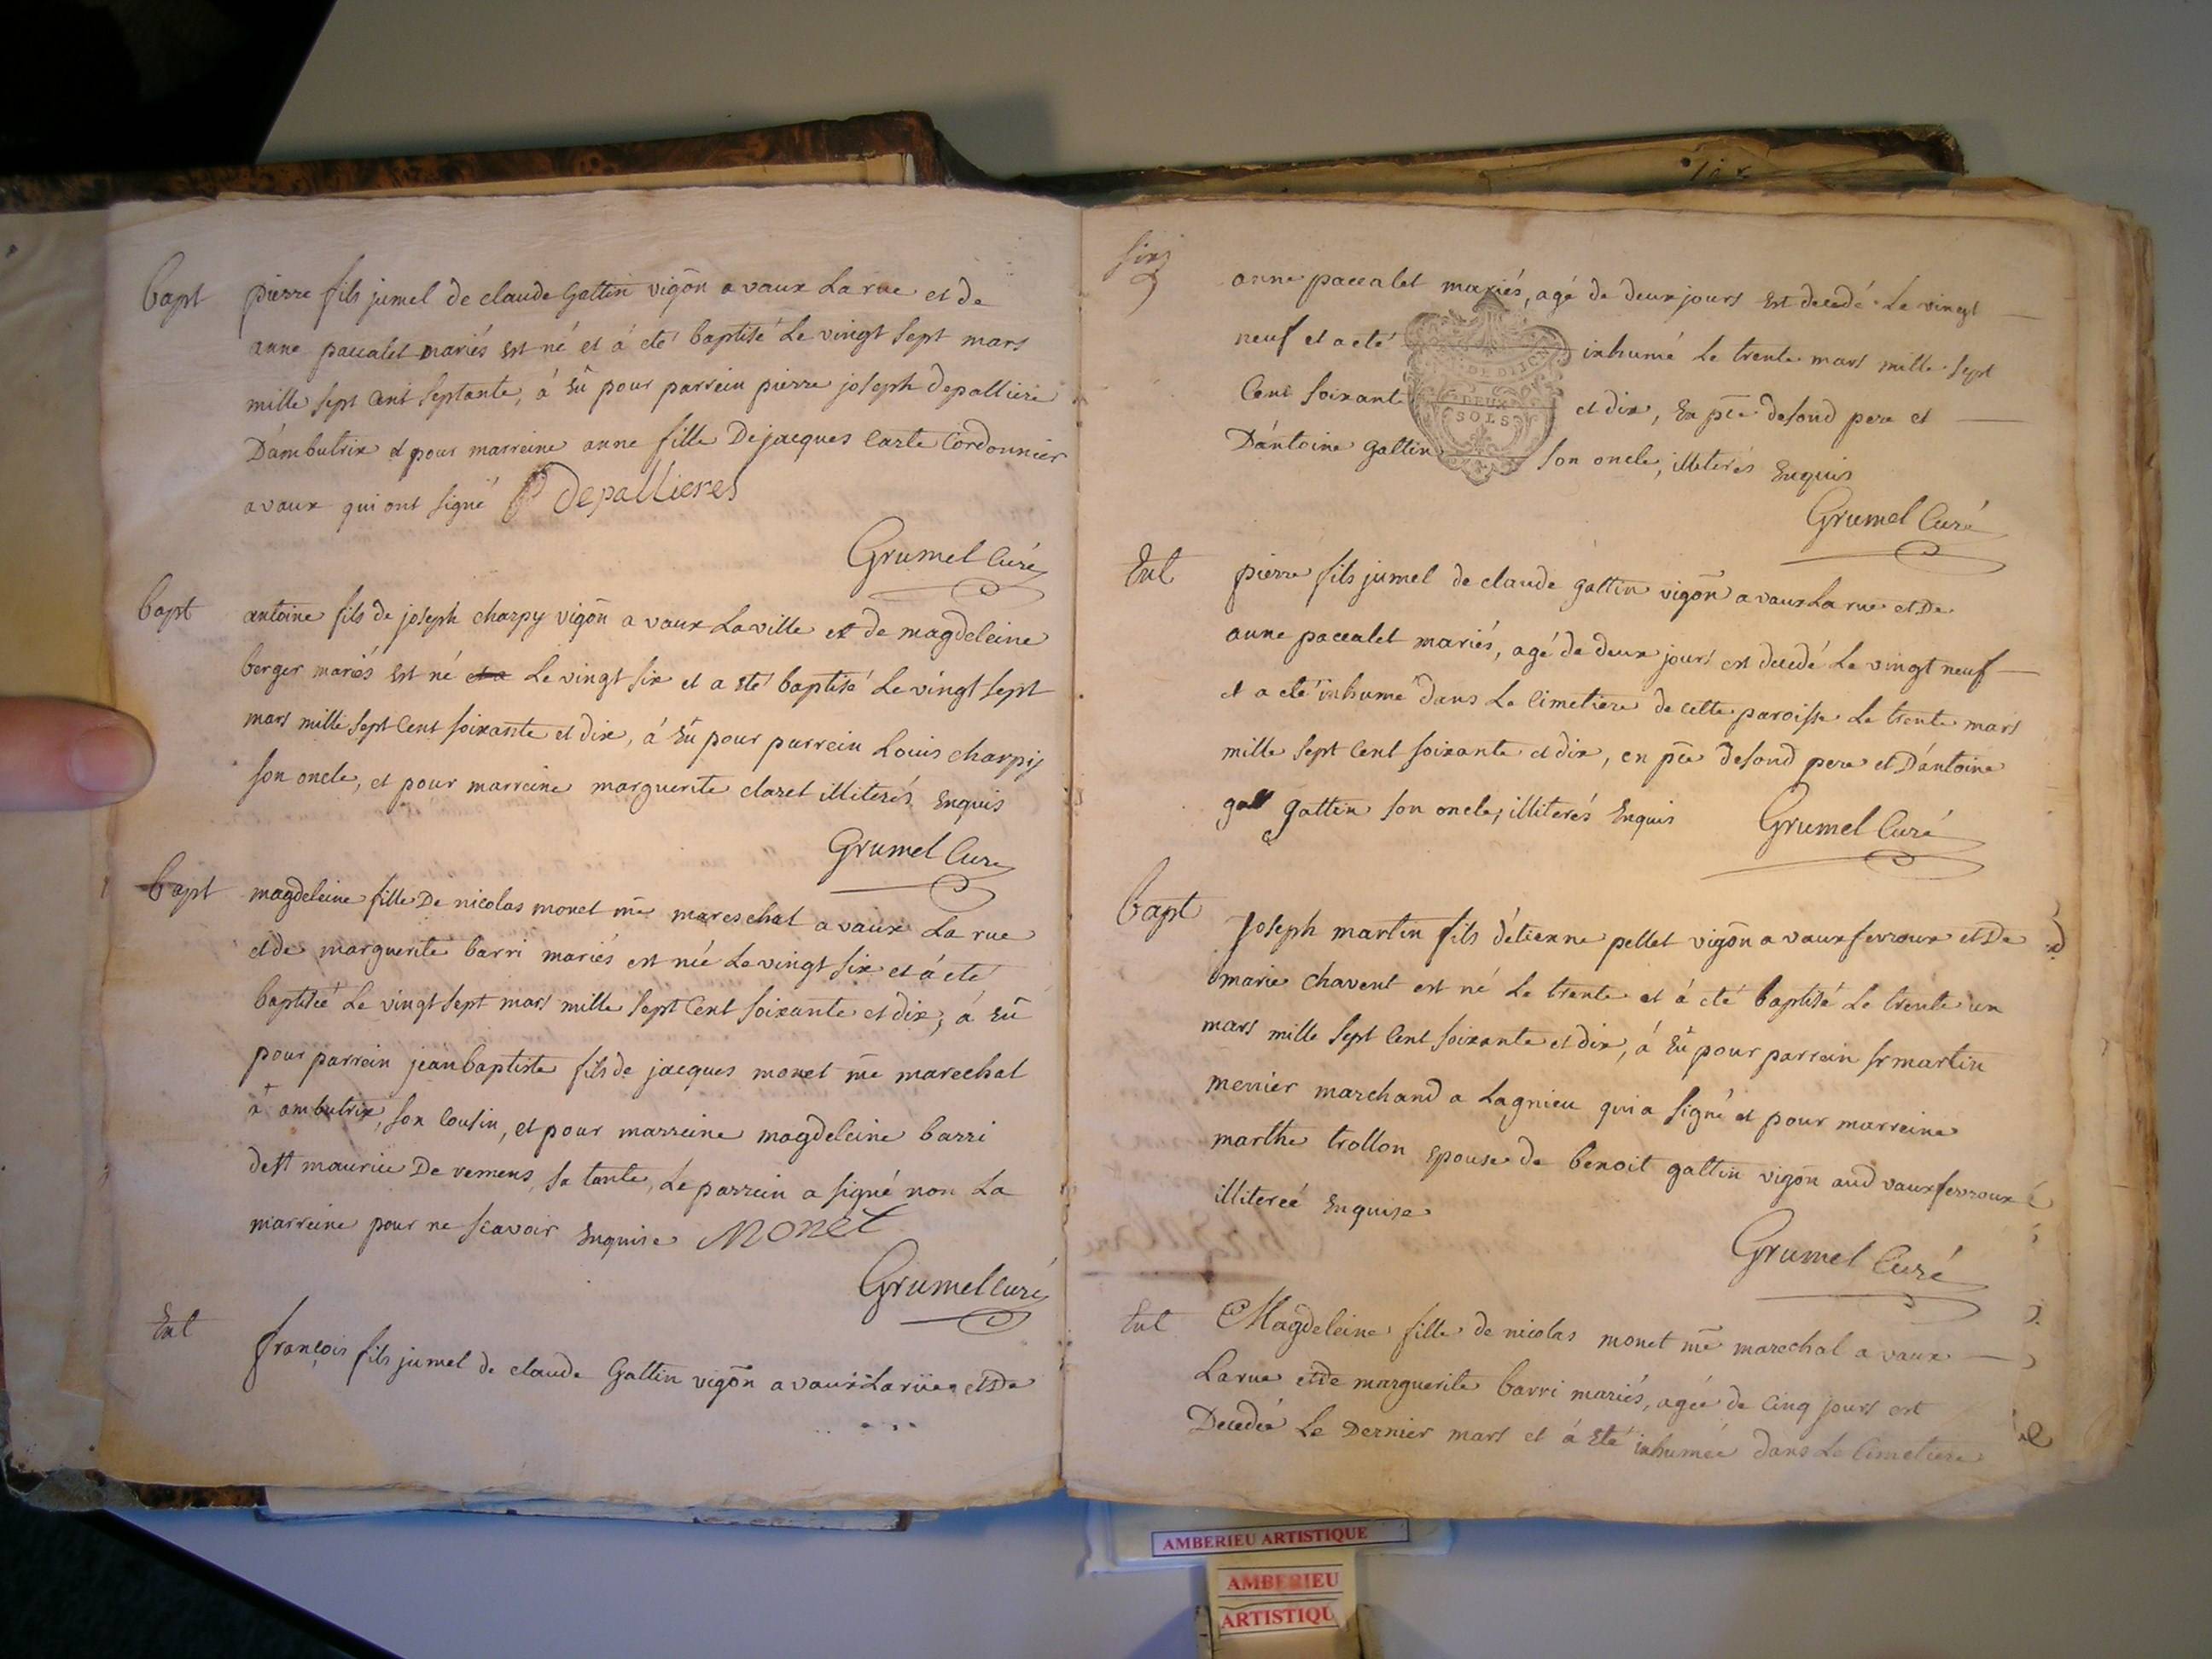 Bapt pierre fils jumel de claude Gattin vigōn a vaux La rue et de
anne paccalet mariés est né et á eté baptisé Le vingt sept mars
mille sept Cent septante, á Eû pour parrein pierre joseph depalliere
D'ambutrix et pour marreine anne fille De jacques Carte Cordonnier
a vaux qui ont signé P Depallieres
Grumel Curé
Bapt antoine fils de joseph charpy vigōn a vaux La ville et de magdeleine
berger mariés est né et a Le vingt six et a eté baptisé Le vingt sept
mars mille sept Cent soixante et dix, á Eû pour parrein Louis charpy
son oncle, et pour marreine marguerite claret illiterés Enquis
Grumel Curé
Bapt magdeleine fille De nicolas monet mē mareschal a vaux La rue
et de marguerite barri mariés est née Le vingt six et á eté
baptisée Le vingt sept mars mille sept Cent soixante et dix, á Eû
pour parrein jean baptiste fils de jacques monet mē marechal
a ambutrix, son Cousin, et pour marreine magdeleine barri
de st maurice De remens, sa tante, Le parrein a signé non La
marreine pour ne scavoir Enquise Monet
Grumel Curé
Ent françois fils jumel de claude Gattin vigōn a vaux La rüe et De
six
anne paccalet mariés, agé de deux jours est decedé Le vingt
neuf et a eté inhumé Le trente mars mille sept
Cent soixante et dix, En pce desond pere et
D'antoine gattin son oncle, illiterés Enquis
DEUX
SOLS
Grumel Curé
Ent pierre fils jumel de claude gattin vigōn a vaux La rue et De
anne paccalet mariés, agé de deux jours est decedé Le vingt neuf
et a eté inhumé dans Le Cimetiere de cette paroisse Le trente mars
mille sept Cent soixante et dix, en pce desond pere et D'antoine
gatt gattin son oncle, illiterés Enquis Grumel Curé
Bapt Joseph martin fils d'etienne pellet vigōn a vaux fevroux et De
marie Chavent est né Le trente et á eté baptisé Le trente un
mars mille sept Cent soixante et dix, á Eû pour parrein sr martin
menier marchand a Lagnieu qui a signé et pour marreine
marthe trollon Epouse de benoit gattin vigōn aud vaux fevroux
illitereé Enquise
Grumel Curé
Ent Magdeleine fille de nicolas monet mē marechal a vaux
La rue et de marguerite barri mariés, agée de Cinq jours est
Decedée Le Dernier mars et á Eté inhumée dans Le Cimetiere
AMBERIEU ARTISTIQUE
AMBERIEU
ARTISTIQU